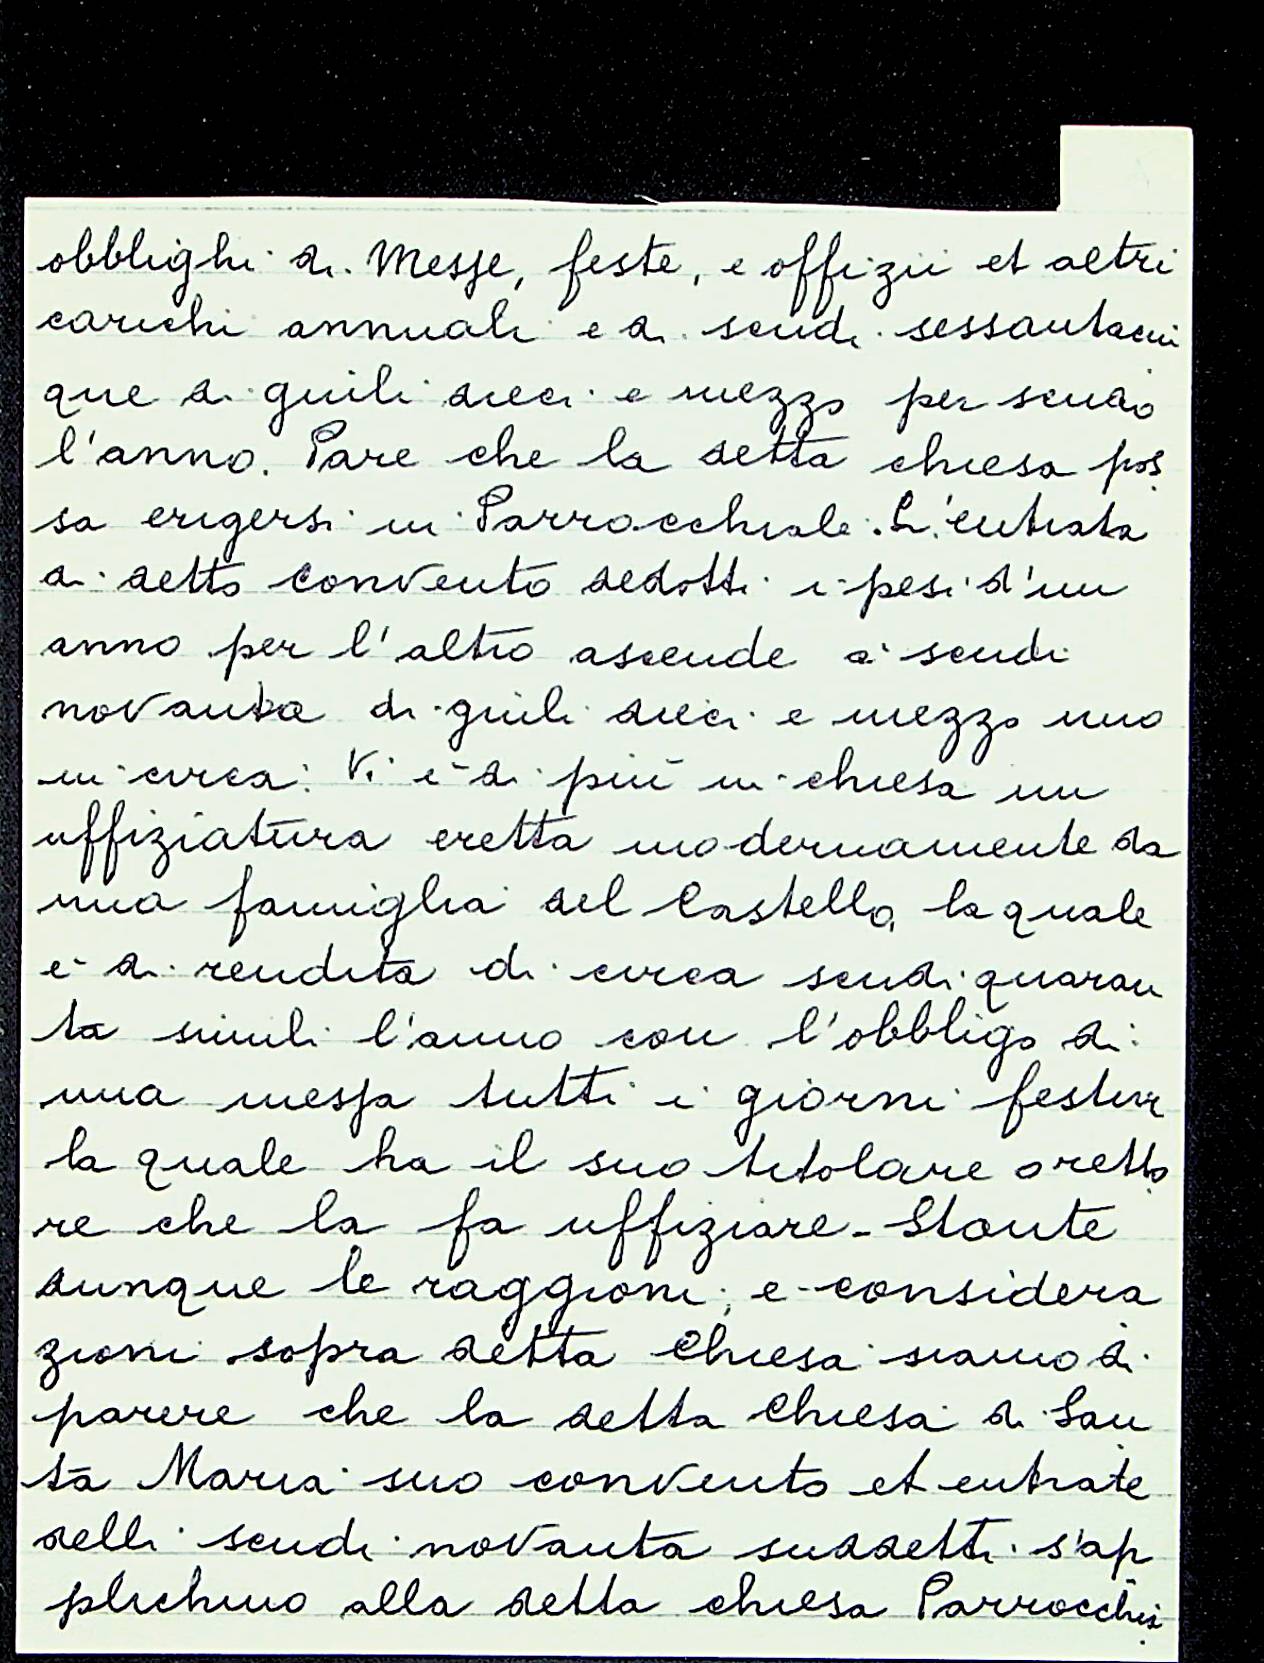 obblighi di Messe, feste, e offizii et altri
carichi annuali e di scudi sessantacin
que di giuli dieci e mezzo per scudo
l'anno. Pare che la detta chiesa pos
sa erigersi in Parrocchiale. L'entrata
di detto convento dedotti i pesi d'un
anno per l'altro ascende a scudi
novanta di giuli dieci e mezzo uno
in circa. Vi è di più in chiesa un
uffiziatura eretta modernamente da
una famiglia del Castello, la quale
è di rendita di circa scudi quaran
ta simili l'anno con l'obbligo di
una messa tutti i giorni festivi
la quale ha il suo titolare o retto
re che la fa uffiziare. Stante
dunque le raggioni, e considera
zioni sopra detta Chiesa siamo di
parere che la detta Chiesa di San
ta Maria suo convento et entrate
delli scudi novanta suddetti s'ap
plichino alla detta chiesa Parrocchi